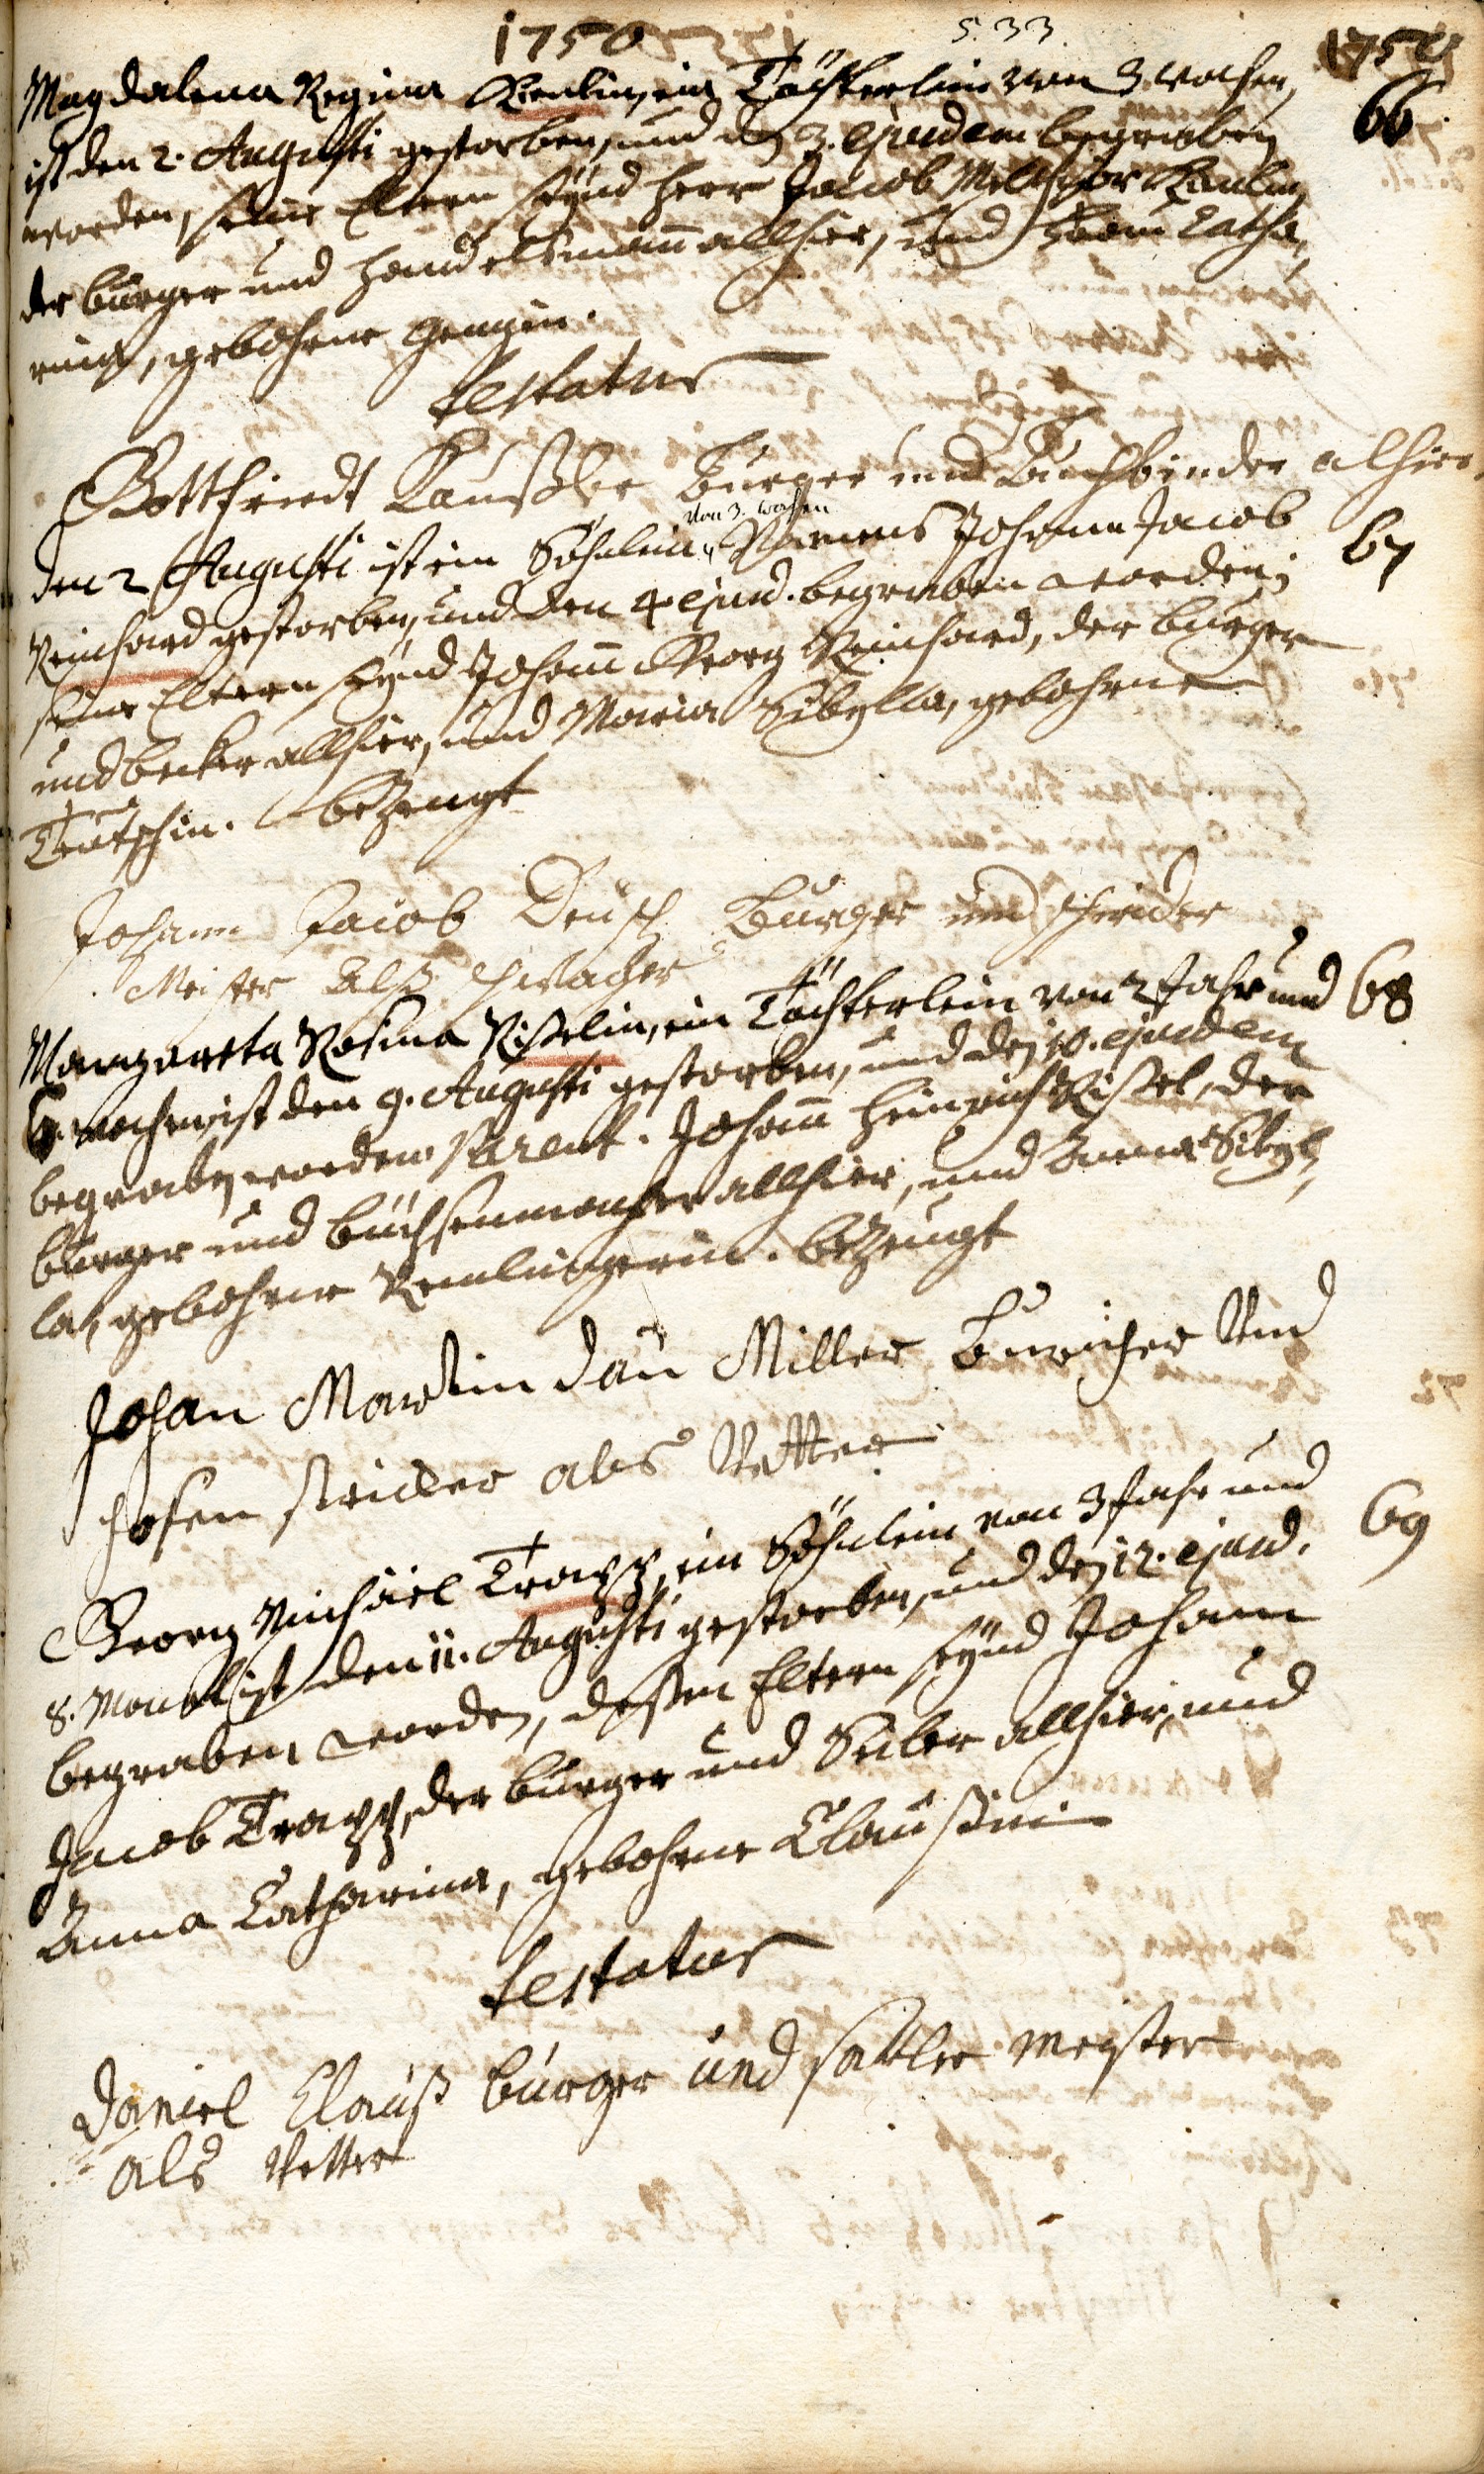 1750
S. 33
1750
Magdalena Regina Kienlin, ein Töchterlein von 3 wochen, 66
ist den 2. Augusti gestorben, und den 3. ejusdem begraben
worden, seine Eltern seynd Herr Jacob Melchior Kienlin,
der burger und handelsmann allhier, und Frau Catha,
rina, gebohrne
testatur
Gottfriedt Burger und Buchbinder alhier
den 2 Augusti ist ein Söhnlein von 3. wochen Namens Johann Jacob 67
Reinhard gestorben, und den 4. ejusd. begraben worden;
seine Eltern seynd Johann Georg Reinhard, der burger
und becker allhier, und Maria Sibylla, gebohrne
Teutschin. bezeugt
Johann Jacob Deusch Burger und schneider
Meister Alß schwager
Margareta Rosina Rißelin, ein Töchterlein von 2 Jahr und 68
6. wochen, ist den 9. Augusti gestorben, und den 10. ejusdem
begraben worden. Parent. Johann Heinrich Rißel, der
burger und büchsenmacher allhier, und Anna Sibyl,
la, gebohrne Remlingerin. bezeugt
Johan Martin Dau Miller Buricher Und
hosen stricker als Vetter
Georg Michäel Trapp, ein Söhnlein von 3 Jahr und 69
8. Monat ist den 11. Augusti gestorben, und den 12. ejusd.
begraben worden, deßen Eltern seynd Johann
Jacob Trapp, der burger und Seiler allhier, und
Anna Catharina, gebohrne Claußin
testatur
Daniel Clauß burger und sattler meister
als Vetter